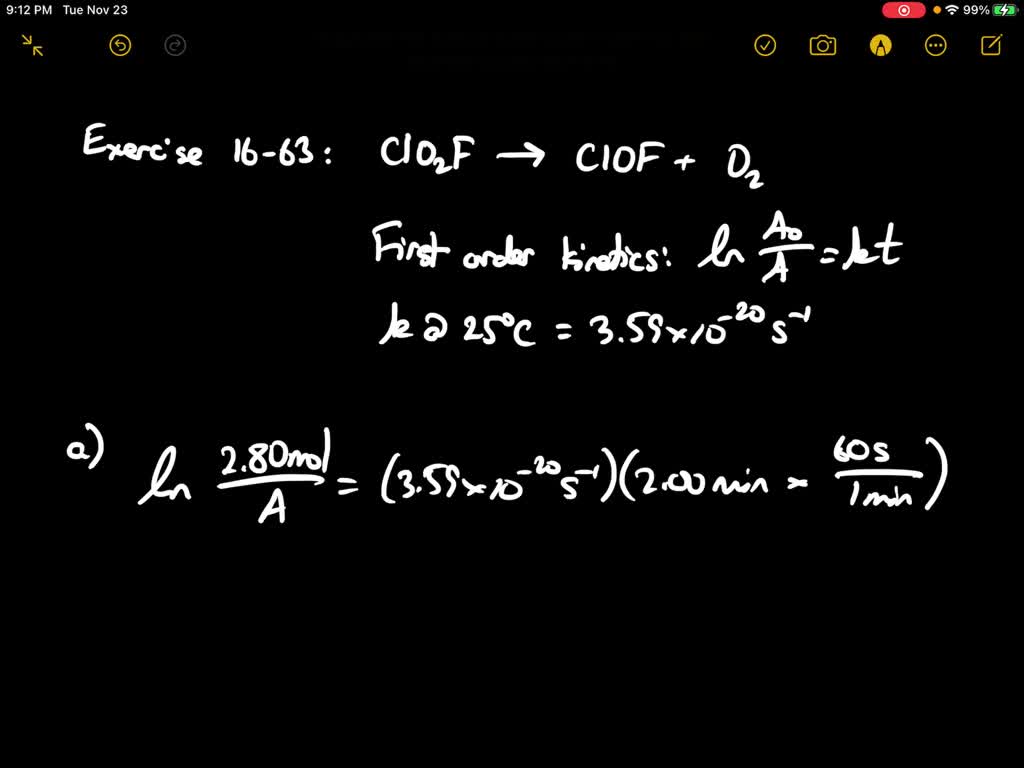 9:12 PM Tue Nov 23 99%
Exercise 16-63: ClO₂F → ClOF + O₂
First order kinetics: ln A₀/A = kt
k @ 25°C = 3.59×10⁻²⁰ s⁻¹
a) ln 2.80mol/A = (3.59×10⁻²⁰ s⁻¹)(2.00 min × 60s/1min)